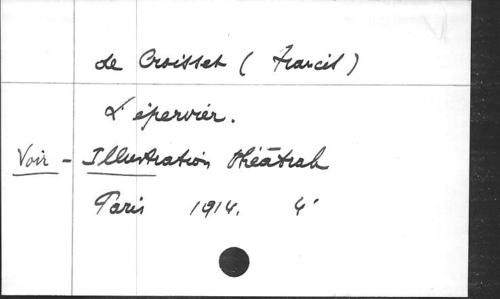 de Croisset (Francis)
L'épervier.
Voir - Illustration théâtrale
Paris 1914. 4°